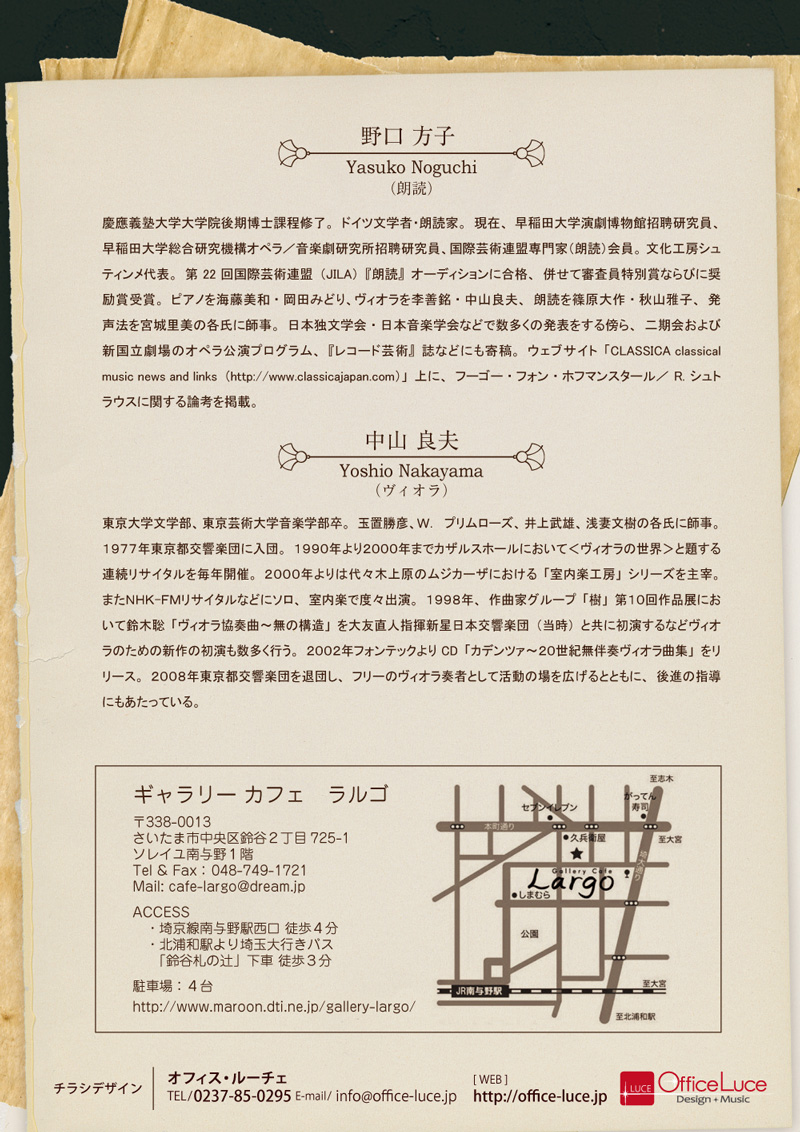 野口 方子
Yasuko Noguchi
(朗読)
慶應義塾大学大学院後期博士課程修了。ドイツ文学者・朗読家。現在、早稲田大学演劇博物館招聘研究員、
早稲田大学総合研究機構オペラ／音楽劇研究所招聘研究員、国際芸術連盟専門家(朗読)会員。文化工房シュ
ティンメ代表。第 22 回国際芸術連盟 (JILA)『朗読』オーディションに合格、併せて審査員特別賞ならびに奨
励賞受賞。ピアノを海藤美和・岡田みどり、ヴィオラを李善銘・中山良夫、朗読を篠原大作・秋山雅子、発
声法を宮城里美の各氏に師事。日本独文学会・日本音楽学会などで数多くの発表をする傍ら、二期会および
新国立劇場のオペラ公演プログラム、『レコード芸術』誌などにも寄稿。ウェブサイト「CLASSICA classical
music news and links (http://www.classicajapan.com)」上に、フーゴー・フォン・ホフマンスタール／ R. シュト
ラウスに関する論考を掲載。
中山 良夫
Yoshio Nakayama
(ヴィオラ)
東京大学文学部、東京芸術大学音楽学部卒。玉置勝彦、W. プリムローズ、井上武雄、浅妻文樹の各氏に師事。
1977年東京都交響楽団に入団。1990年より2000年までカザルスホールにおいて＜ヴィオラの世界＞と題する
連続リサイタルを毎年開催。2000年よりは代々木上原のムジカーザにおける「室内楽工房」シリーズを主宰。
またNHK-FMリサイタルなどにソロ、室内楽で度々出演。1998年、作曲家グループ「樹」第10回作品展にお
いて鈴木聡「ヴィオラ協奏曲～無の構造」を大友直人指揮新星日本交響楽団（当時）と共に初演するなどヴィオ
ラのための新作の初演も数多く行う。2002年フォンテックより CD「カデンツァ～20世紀無伴奏ヴィオラ曲集」をリ
リース。2008年東京都交響楽団を退団し、フリーのヴィオラ奏者として活動の場を広げるとともに、後進の指導
にもあたっている。
ギャラリー カフェ ラルゴ
〒338-0013
さいたま市中央区鈴谷２丁目 725-1
ソレイユ南与野１階
Tel & Fax : 048-749-1721
Mail: cafe-largo@dream.jp
ACCESS
・埼京線南与野駅西口 徒歩４分
・北浦和駅より埼玉大行きバス
「鈴谷札の辻」下車 徒歩３分
駐車場：４台
http://www.maroon.dti.ne.jp/gallery-largo/
至志木
がってん
寿司
セブンイレブン
本町通り
久兵衛屋
至大宮
埼大通り
Gallery Cafe
Largo
しまむら
公園
JR南与野駅
至大宮
至北浦和駅
チラシデザイン
オフィス・ルーチェ
TEL/0237-85-0295 E-mail/ info@office-luce.jp
[ WEB ]
http://office-luce.jp
LUCE
OfficeLuce
Design + Music